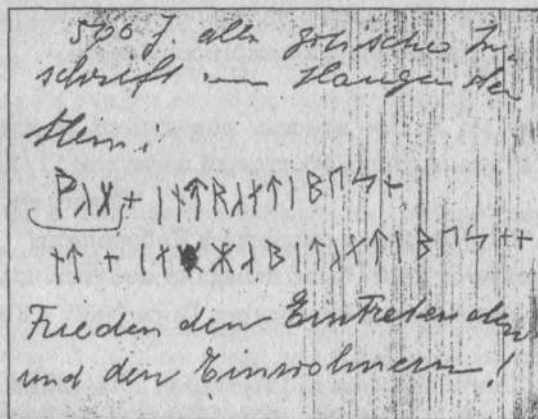 500 J. alte gotische In-
schrift
Stein:
ᚹᛅᚷ + ᛁᚾᛏᚱᛅᚾᛏᛁᛒᚢᛋ +
ᚾᛏ + ᛁᚾᚼᛅᛒᛁᛏᛅᚾᛏᛁᛒᚢᛋ ++
Frieden den Eintretenden
und den Einwohnern!